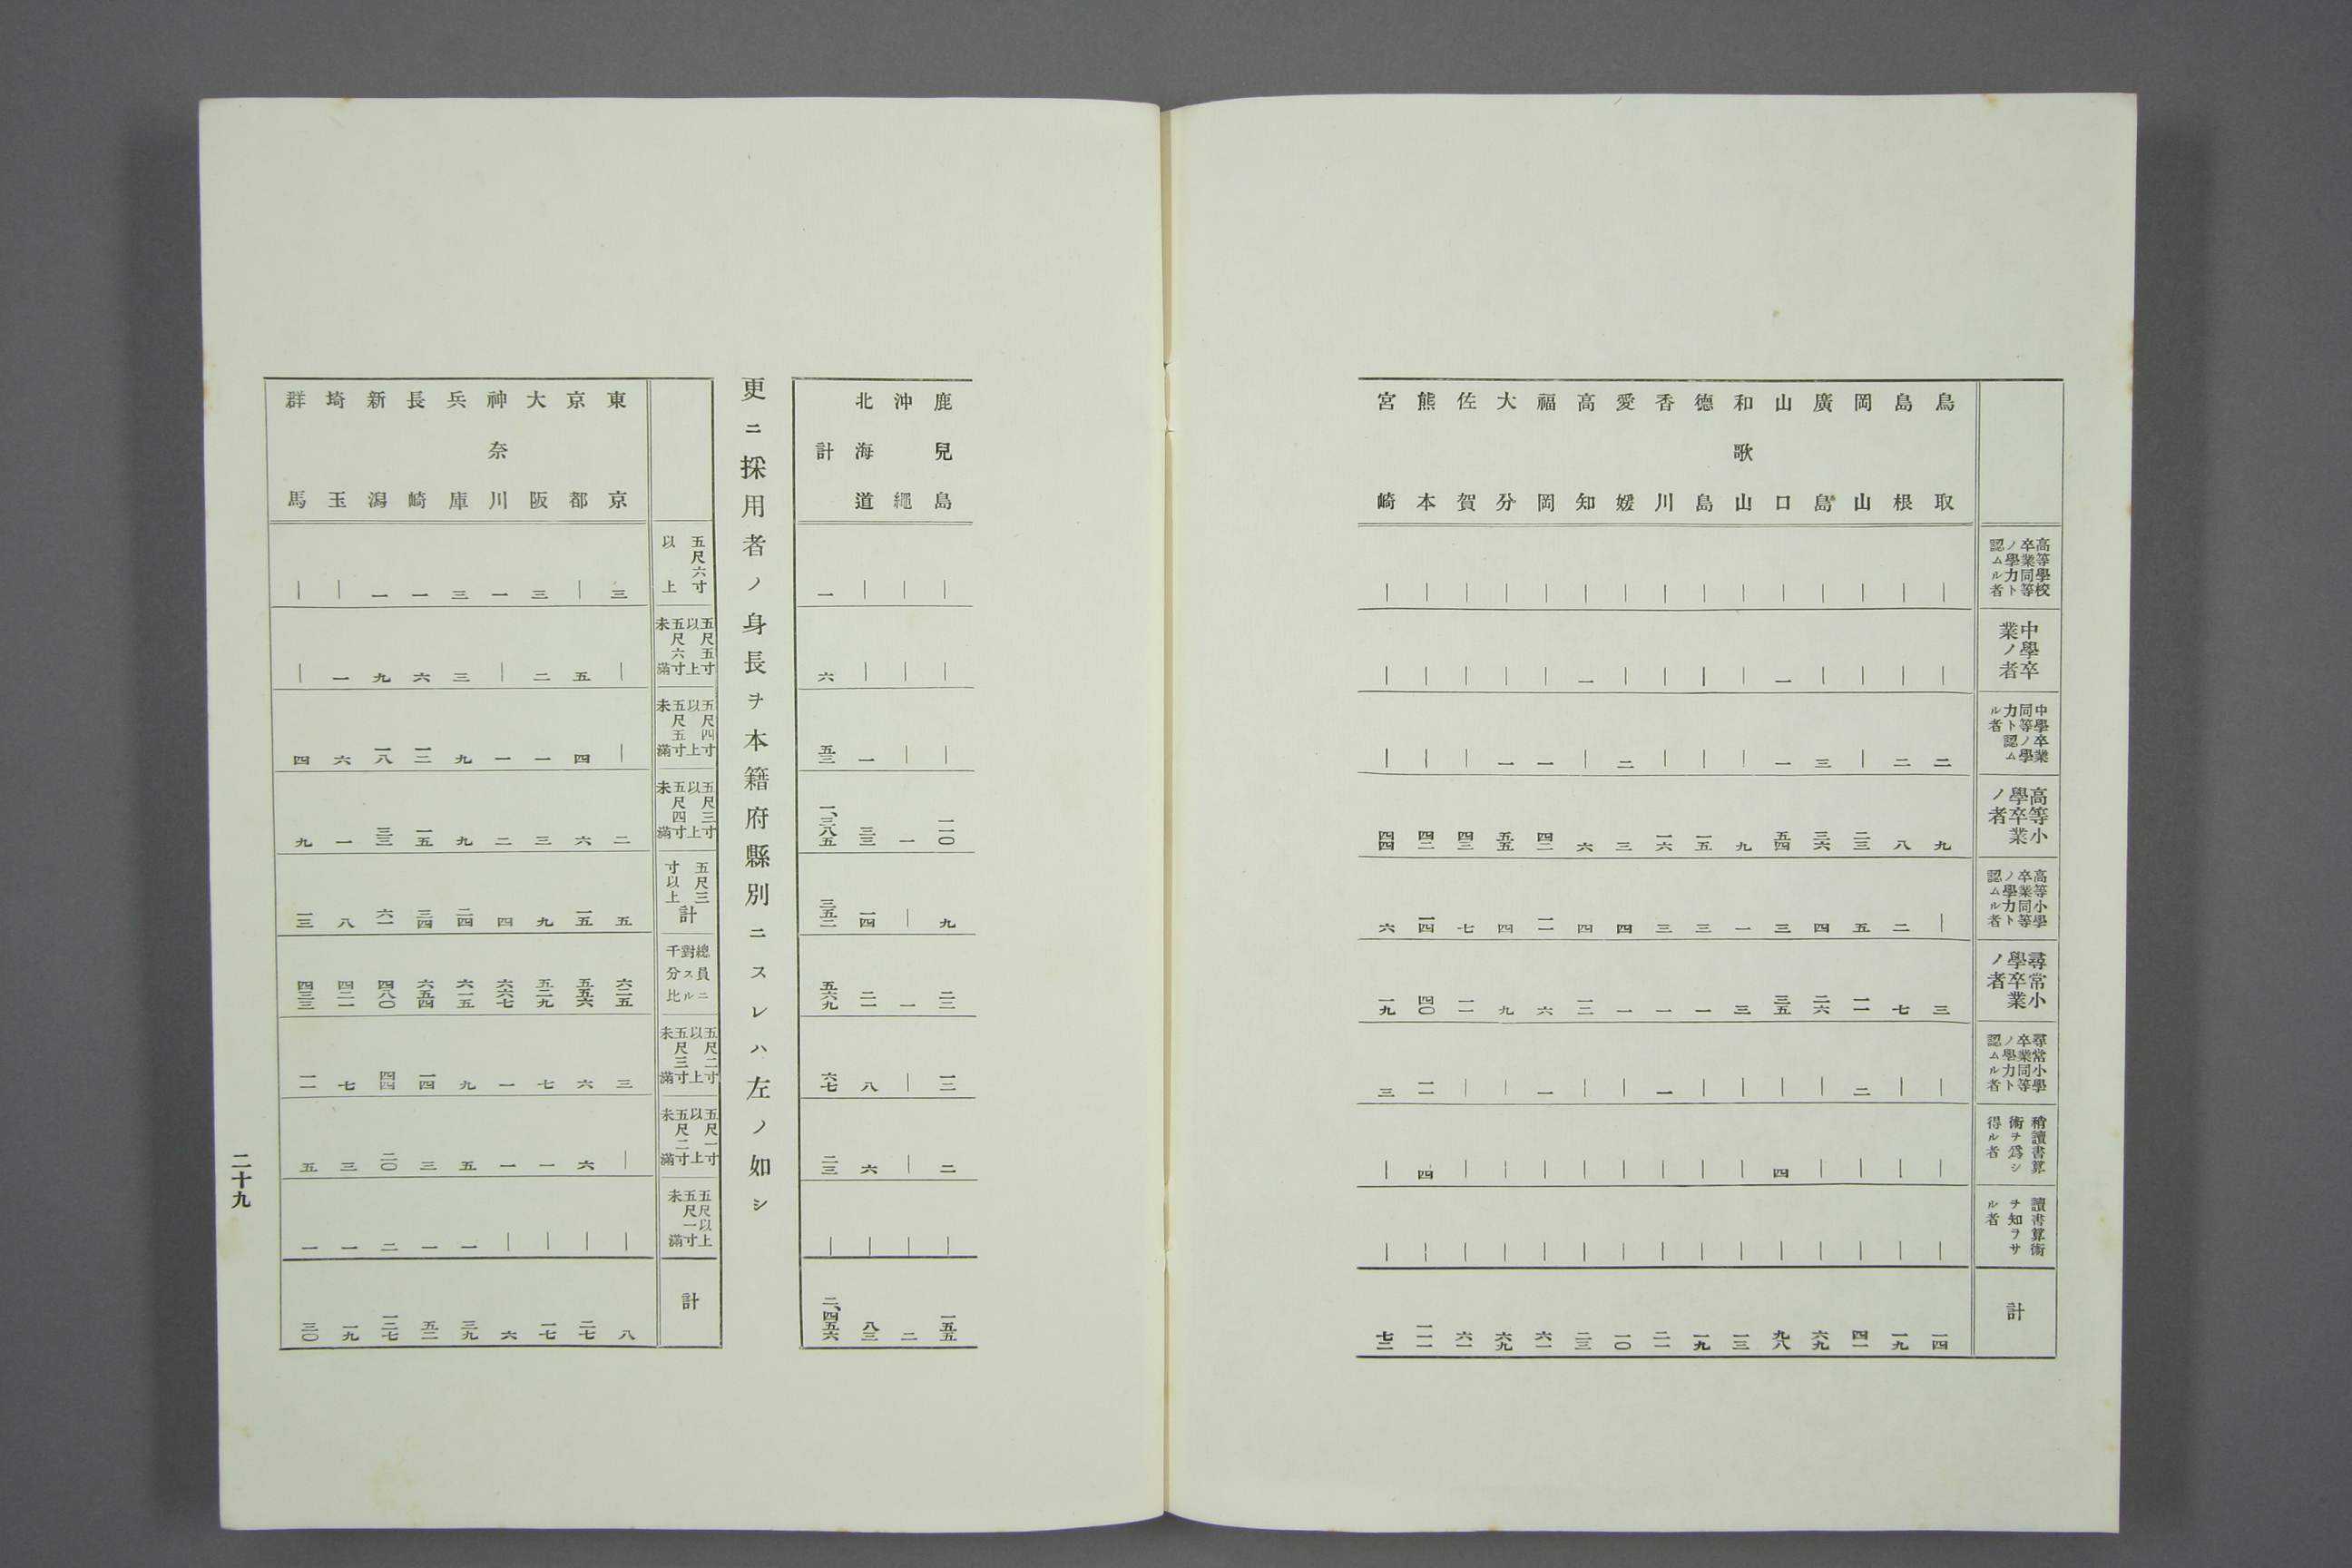 高等學校卒業同等ノ學力ト認ムル者 中學卒業ノ者 中學卒業同等ノ學力ト認ムル者 高等小學卒業ノ者 高等小學卒業同等ノ學力ト認ムル者 尋常小學卒業ノ者 尋常小學卒業同等ノ學力ト認ムル者 稍讀書算術ヲ爲シ得ル者 讀書算術ヲ知ラサル者 計
鳥取 ｜ ｜ 二 九 ｜ 三 ｜ ｜ ｜ 一四
島根 ｜ ｜ 二 八 二 七 ｜ ｜ ｜ 一九
岡山 ｜ ｜ ｜ 二三 五 一一 二 ｜ ｜ 四一
廣島 ｜ ｜ 三 三六 四 二六 ｜ ｜ ｜ 六九
山口 ｜ 一 一 五四 三 三五 ｜ 四 ｜ 九八
和歌山 ｜ ｜ ｜ 九 一 三 ｜ ｜ ｜ 一三
德島 ｜ ｜ ｜ 一五 三 一 ｜ ｜ ｜ 一九
香川 ｜ ｜ ｜ 一六 三 一 一 ｜ ｜ 二一
愛媛 ｜ ｜ 二 三 四 一 ｜ ｜ ｜ 一〇
高知 ｜ 一 ｜ 六 四 一二 ｜ ｜ ｜ 二三
福岡 ｜ ｜ 一 四二 一一 六 一 ｜ ｜ 六一
大分 ｜ ｜ 一 五五 四 九 ｜ ｜ ｜ 六九
佐賀 ｜ ｜ ｜ 四三 七 一一 ｜ ｜ ｜ 六一
熊本 ｜ ｜ ｜ 四二 一四 四〇 一一 四 ｜ 一一一
宮崎 ｜ ｜ ｜ 四四 六 一九 三 ｜ ｜ 七二
鹿兒島 ｜ ｜ ｜ 一一〇 九 二二 一二 二 ｜ 一五五
沖繩 ｜ ｜ ｜ 一 ｜ 一 ｜ ｜ ｜ 二
北海道 ｜ ｜ 一 三三 一四 二一 八 六 ｜ 八三
計 一 六 五三 一、三八五 三五二 五六九 六七 二三 ｜ 二、四五六
更ニ採用者ノ身長ヲ本籍府縣別ニスレハ左ノ如シ
五尺六寸以上 五尺五寸以上五尺六寸未滿 五尺四寸以上五尺五寸未滿 五尺三寸以上五尺四寸未滿 五尺三寸以上計 總員ニ對スル千分比 五尺二寸以上五尺三寸未滿 五尺一寸以上五尺二寸未滿 五尺以上五尺一寸未滿 計
東京 三 ｜ ｜ 二 五 六二五 三 ｜ ｜ 八
京都 ｜ 五 四 六 一五 五五六 六 六 ｜ 二七
大阪 三 二 一 三 九 五二九 七 一 ｜ 一七
神奈川 一 ｜ 一 二 四 六六七 一 一 ｜ 六
兵庫 三 三 九 九 二四 六一五 九 五 一 三九
長崎 一 六 一二 一五 三四 六五四 一四 三 一 五二
新潟 一 九 一八 三三 六一 四八〇 四四 二〇 二 一二七
埼玉 ｜ 一 六 一 八 四二一 七 三 一 一九
群馬 ｜ ｜ 四 九 一三 四三三 一一 五 一 三〇
二十九